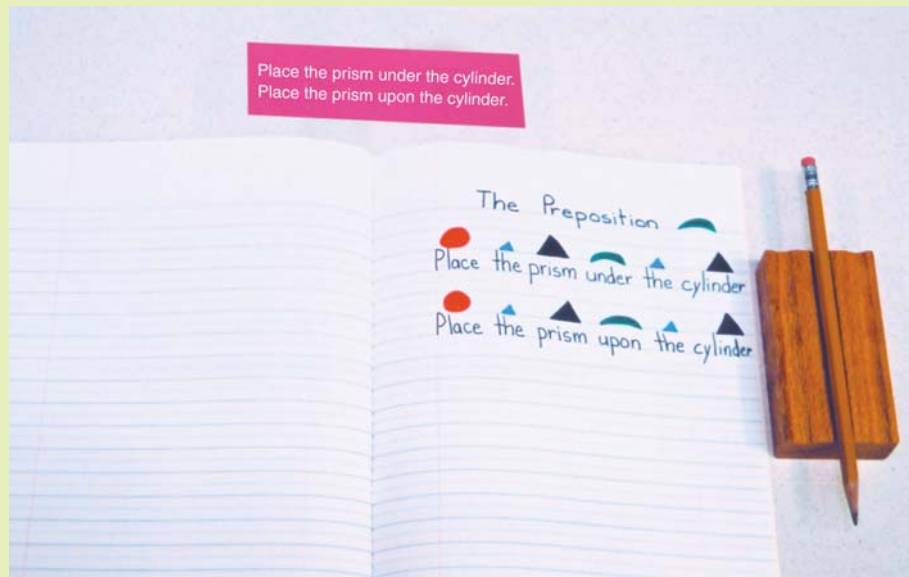 Place the prism under the cylinder.
Place the prism upon the cylinder.
The Preposition
Place the prism under the cylinder
Place the prism upon the cylinder